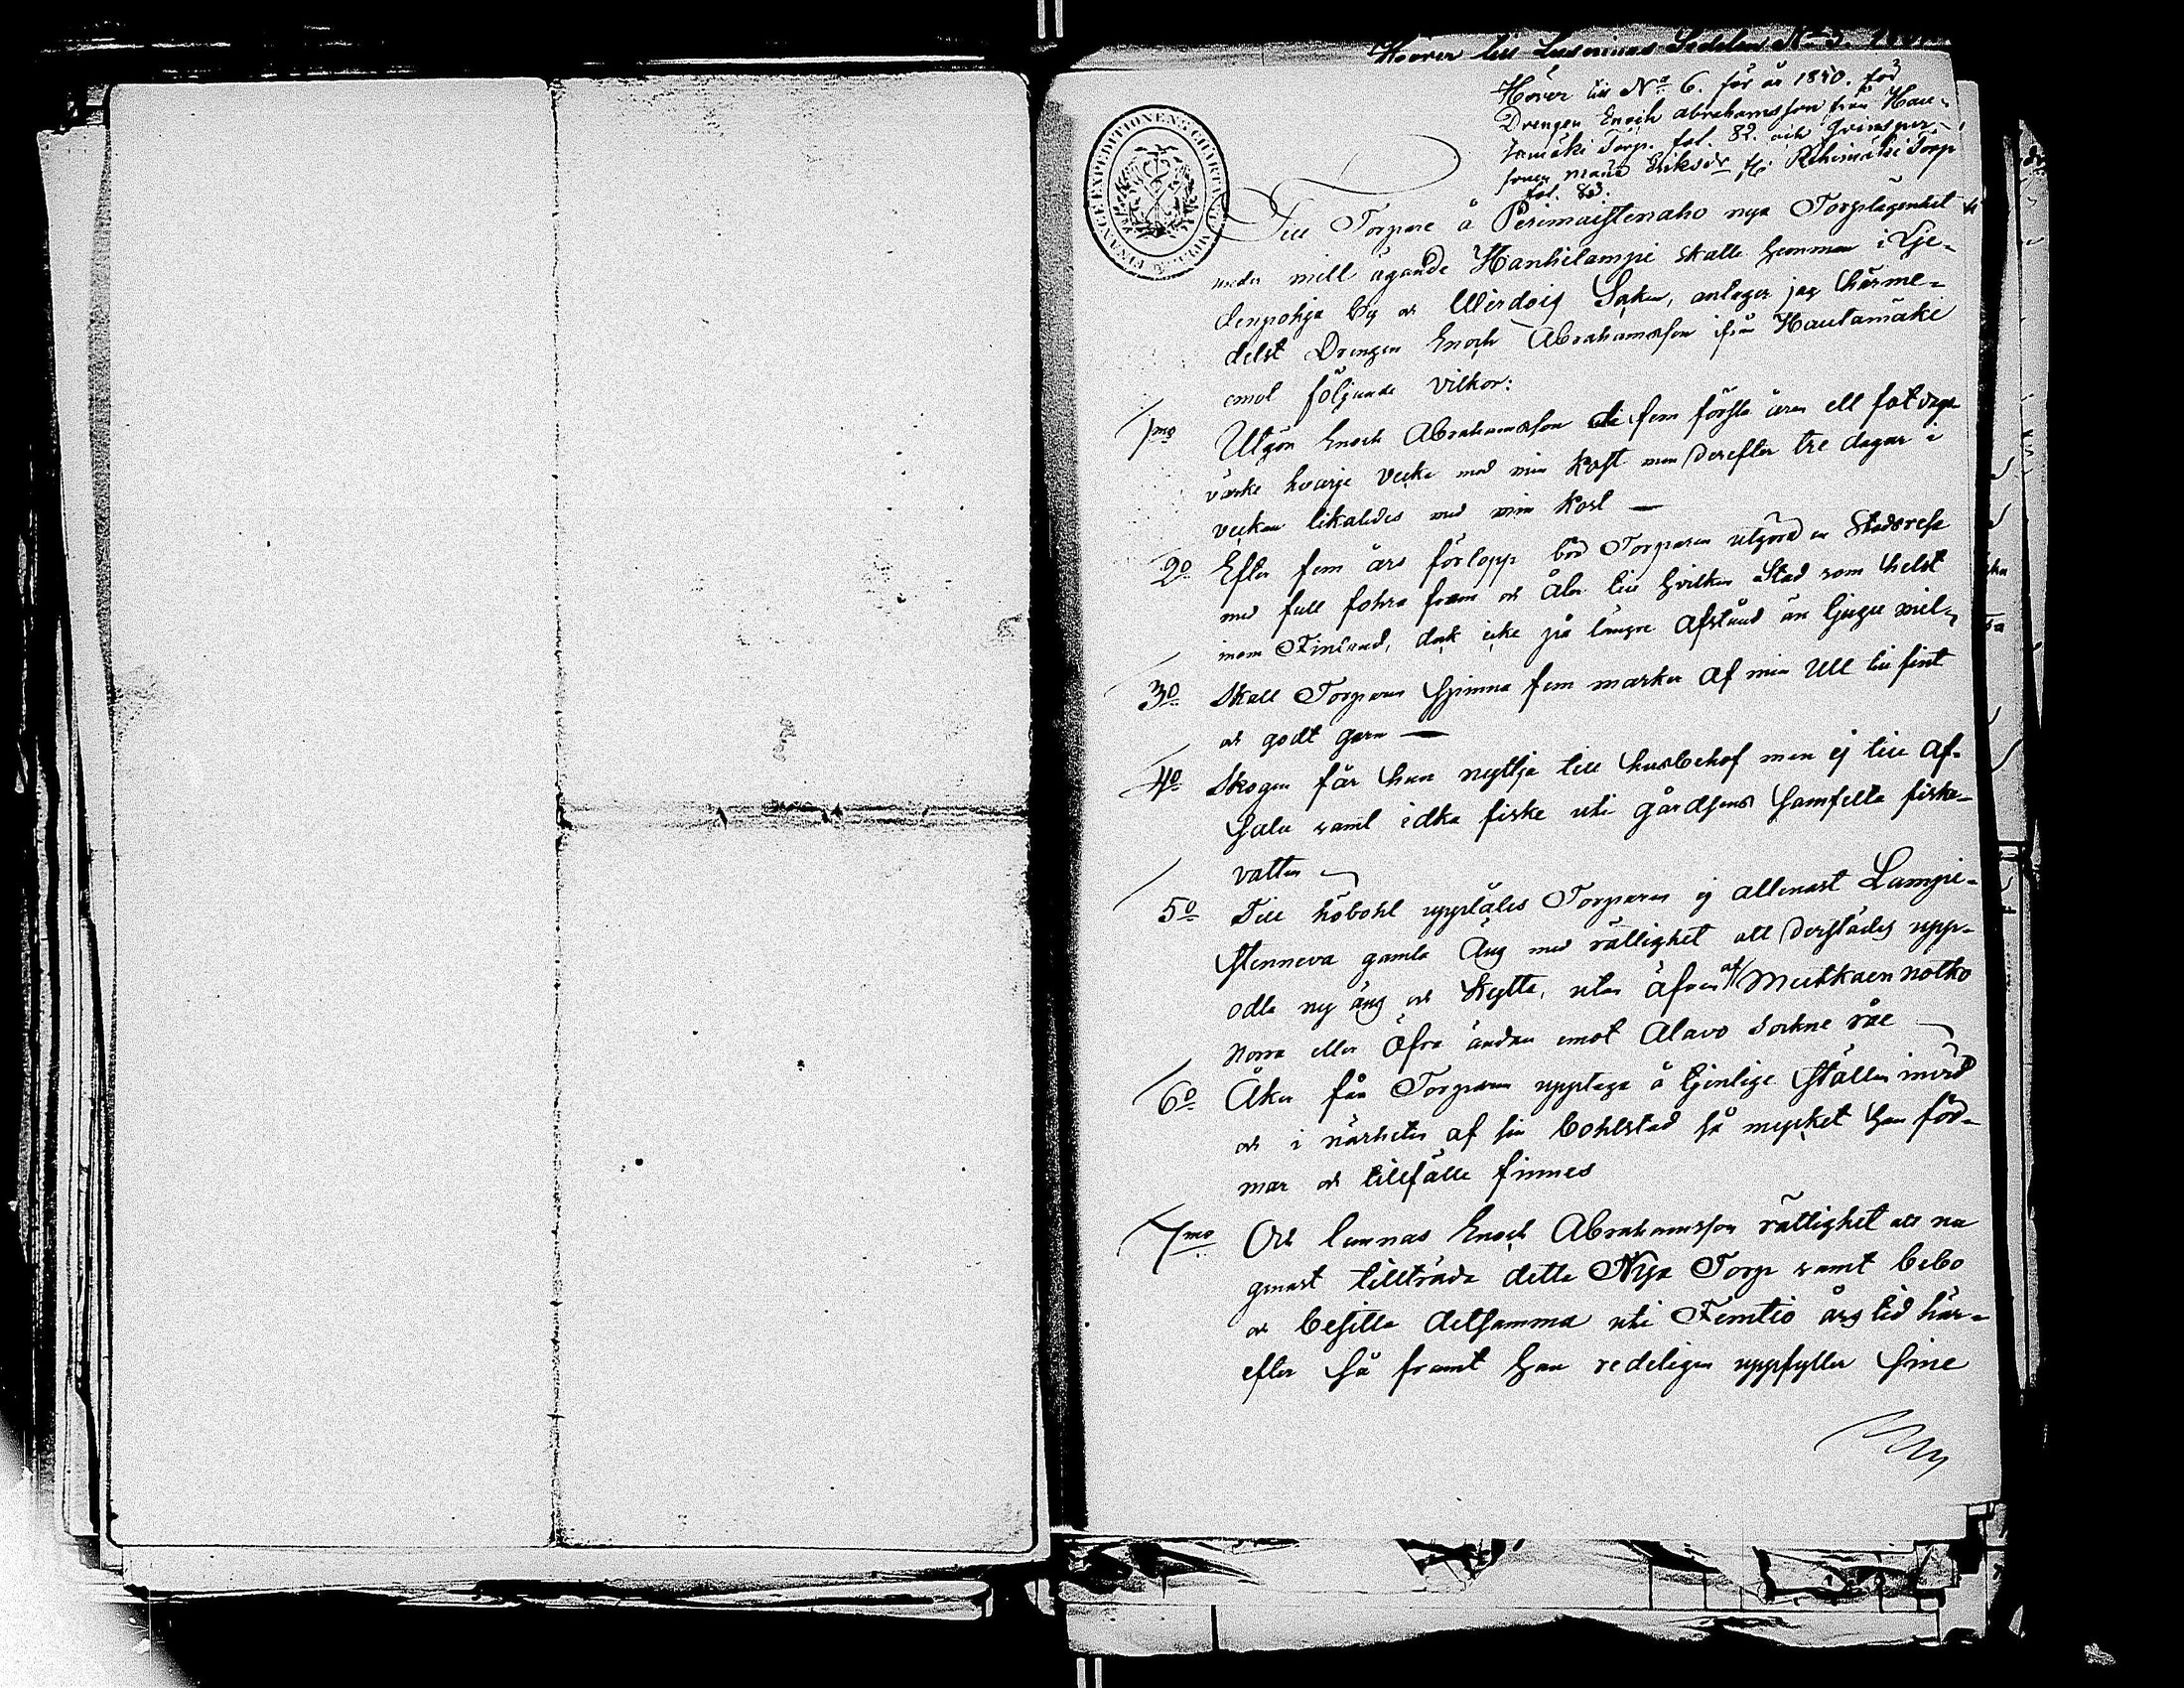 Hörer till Lysnings Sedelen No 5.
Hörer till No 6. för år 1840. för
Drengen Enoch Abrahamsson från Hau-
tamäki Torp. fol. 82. och
Maria Eriksdr fr. Riihimäki Torp
fol. 83.
Till Torpare å Perimaistenaho nya Torplägenhet
under mitt ägande Hanhilampi skatte hemman i Lje-
denpohja by och Wirdois Sokn, antager jag härme-
delst Drengen Enoch Abrahamsson ifrån Hautamäki
emot följande vilkor:
1mo Utgör Enoch Abrahamsson de fem första åren ett fot dags
värke hvarje vecka med min kost men derefter tre dagar i
veckan likaledes med min kost —
2o Efter fem års förlopp bör Torparen utgöra en Stadsresa
med full fohra fram och åter till hvilken Stad som helst
inom Finland, dock icke på längre afstånd än tjugu mil
3o Skall Torparen spinna fem marker af min Ull till fint
och godt garn —
4o Skogen får han nyttja till husbehof men ej till af-
salu samt idka fiske uti gårdsens samfelta fiske-
vatten
5o Till höbohl upplåtes Torparen ej allenast Lampi-
stenneva gamla Äng med rättighet att derstädes upp-
odla ny äng och kytte, utan äfven af Mutkaen notko
norra eller öfra ändan emot Alavo Sockne råe
6o Åker får Torparen upptaga å tjenlige ställen invid
och i närheten af sin bohlstad så mycket han för-
mår och tillfälle finnes
7mo Och lemnas Enoch Abrahamsson rättighet att nu
genast tillträda detta Nya Torp samt bebo
och besitta detsamma uti Femtio års tid här-
efter så framt han redeligen uppfyller sine